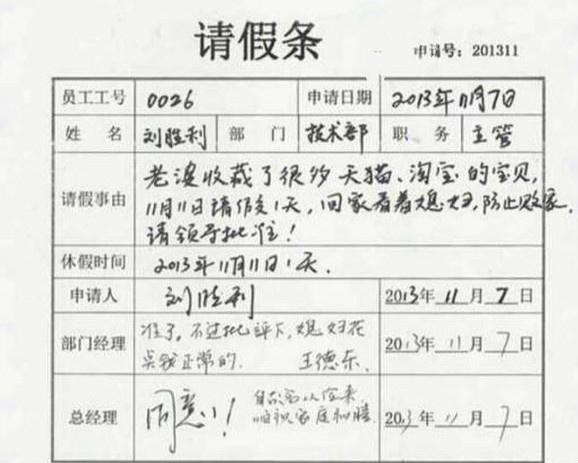 请假条
申请号：201311
员工工号 0026 申请日期 2013年11月7日
姓 名 刘胜利 部 门 技术部 职 务 主管
请假事由
老婆收藏了很多天猫、淘宝的宝贝,
11月11日请假1天,回家看着媳妇,防止败家.
请领导批准!
休假时间 2013年11月11日1天.
申请人 刘胜利 2013年 11 月 7 日
部门经理
准了,不过批评下,媳妇花
吴钱正常的. 王德乐. 2013年 11 月 7 日
总经理 同意! 2013年 11 月 7 日
家庭和睦.